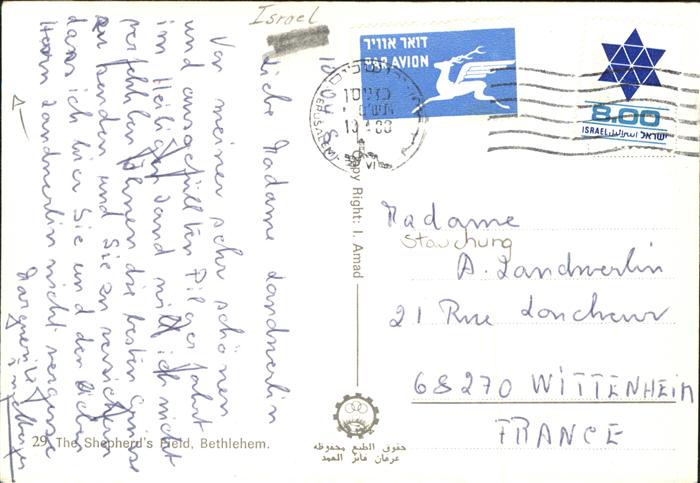 Israel
18.04.8
Liebe Madame Landwerlin
Von meiner sehr schönen
und ausgefüllten Pilgerfahrt
im Heiligen Land möcht ich nicht
verfehlen Ihnen die besten Grüsse
zu senden und Sie zu versichern
dass ich hier Sie und den lieben
Herrn Landwerlin nicht vergesse
Marguerite
29. The Shepherd's Field, Bethlehem.
Copy Right: I. Amad
דואר אוויר
PAR AVION
JERUSALEM
8.00
ISRAEL اسرائيل ישראל
Madame
Stauchung
A. Landwerlin
21 Rue Loucheur
68270 WITTENHEIM
FRANCE
حقوق الطبع محفوظه
عرفان فائز العمد